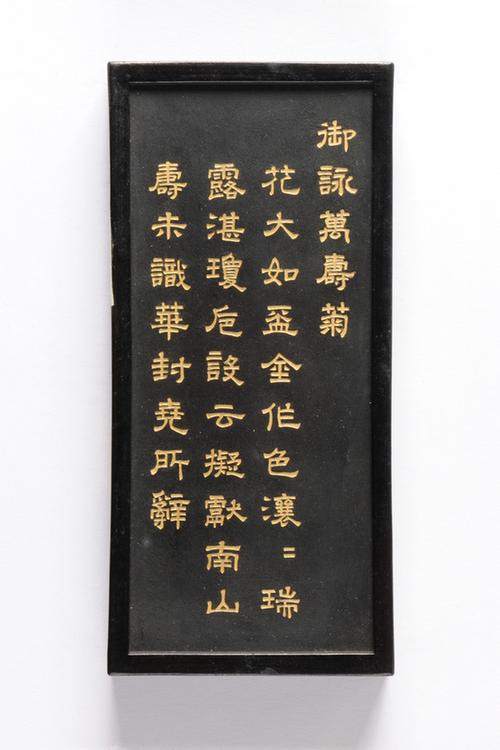 御詠萬壽菊
花大如盃金作色瀼〻瑞
露湛瓊卮設云擬獻南山
壽未識華封堯所辭